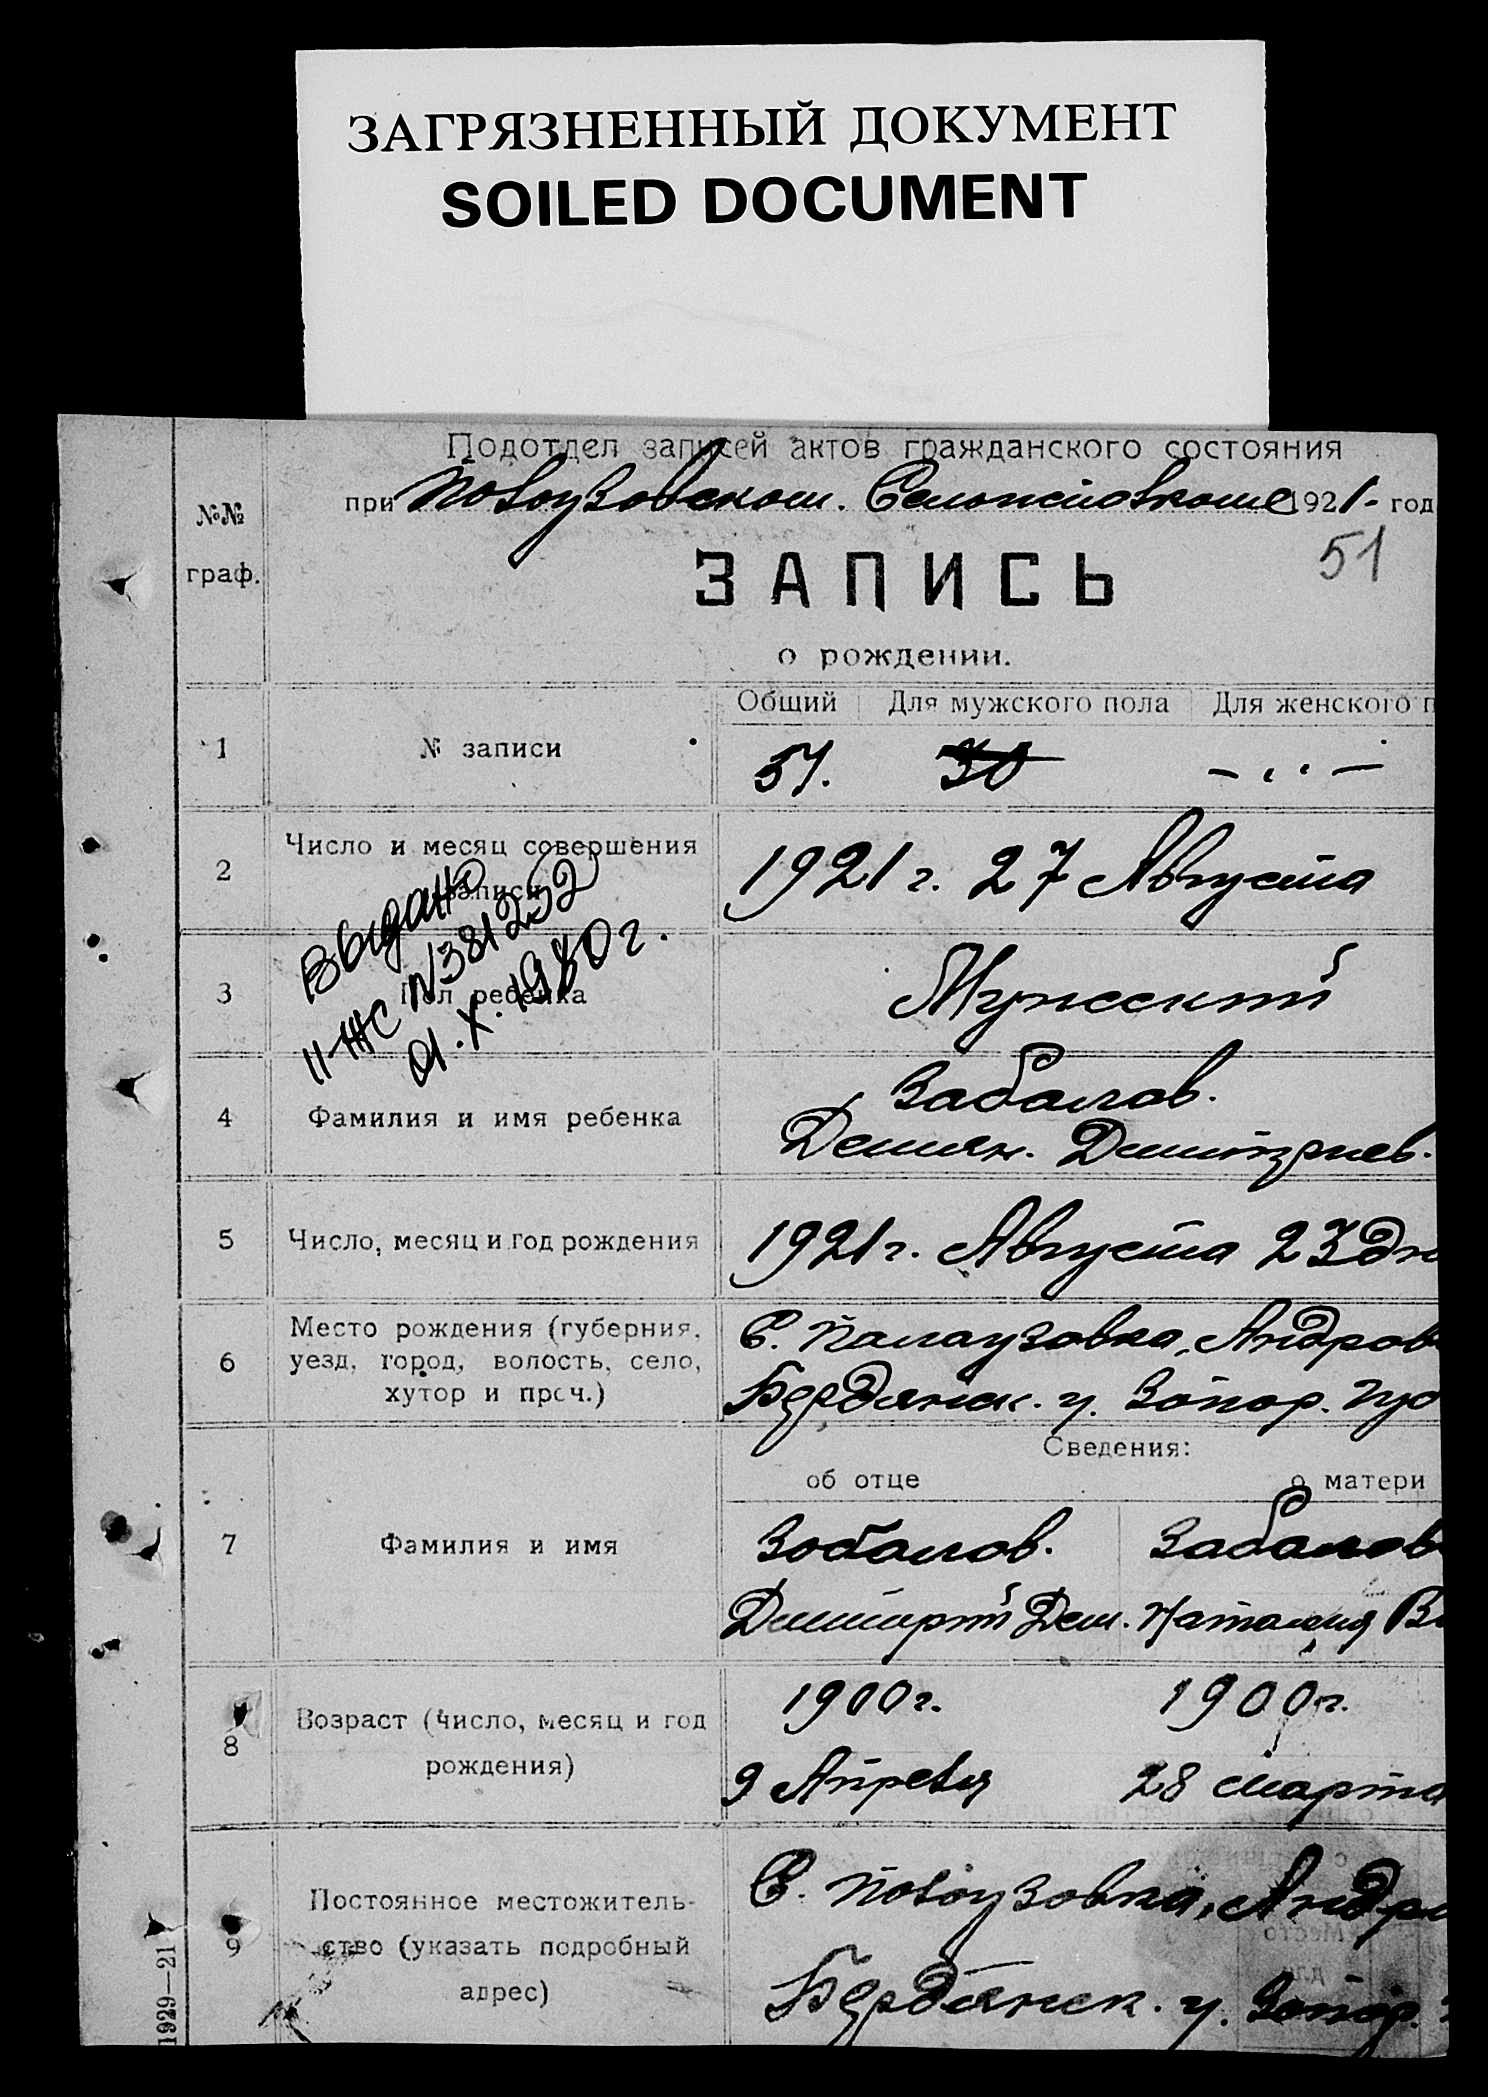 ЗАГРЯЗНЕННЫЙ ДОКУМЕНТ
SOILED DOCUMENT
Подотдел записей актов гражданского состояния
при 1921 год
№№
граф.
51
ЗАПИСЬ
о рождении.
Общий Для мужского пола Для женского п
1 № записи 51. 30
2 Число и месяц совершения
записи
1921 г. 27 Августа
Выдано
II-ЖС N381252
01.X.1980г.
3 Пол ребенка Мужеский
4 Фамилия и имя ребенка Забалов.
Демиян. Дмитриев.
5 Число, месяц и год рождения 1921г. Августа 23 дн
6 Место рождения (губерния,
уезд, город, волость, село,
хутор и проч.)
С. Палаузовка, Андров
Бердянск. у. Запор. губ
Сведения:
об отце о матери
7 Фамилия и имя Забалов. Забалов
Дмитрий Дем. Наталия
8 Возраст (число, месяц и год
рождения)
1900г. 1900г.
9 Апреля 28 марта
9 Постоянное местожитель-
ство (указать подробный
адрес)
С. Андр
Бердянск. у. Запор.
1929—21